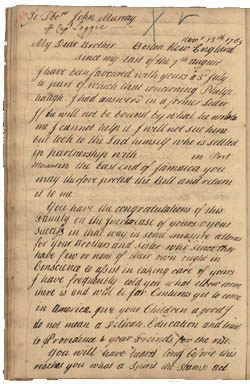 To Doctr John Murray
pr Captn Loggie
Novr 13th 1765
My Dear Brother Boston New England
Since my last of the 7th August
I have been favoured with yours 23d July
of which that concerning Philip
haugh I had answered in a former Letter
If he will not be bound by what he wrote
me I cannot help it. I will not see him
but look to the Lad himself who is settled
in partnership with in Port
the East End of Jamaica you
may therefore protest the Bill and return
it to me
You have the congratulations of this
Family on the Increase of yours & your
Success in that way in some measure attone
for your Brothers and Sister who since they
have few or none of their own ought in
Conscience to assist in taking care of yours
I have frequently told you what elbow room
there is and will be for Centuries yet to come
in America, give your Children a good I
do not mean a Delicate Education and trust
to Providence & your Friends for the rest.
You will have heard long before this
reaches you what a Spirit the Stamp Act